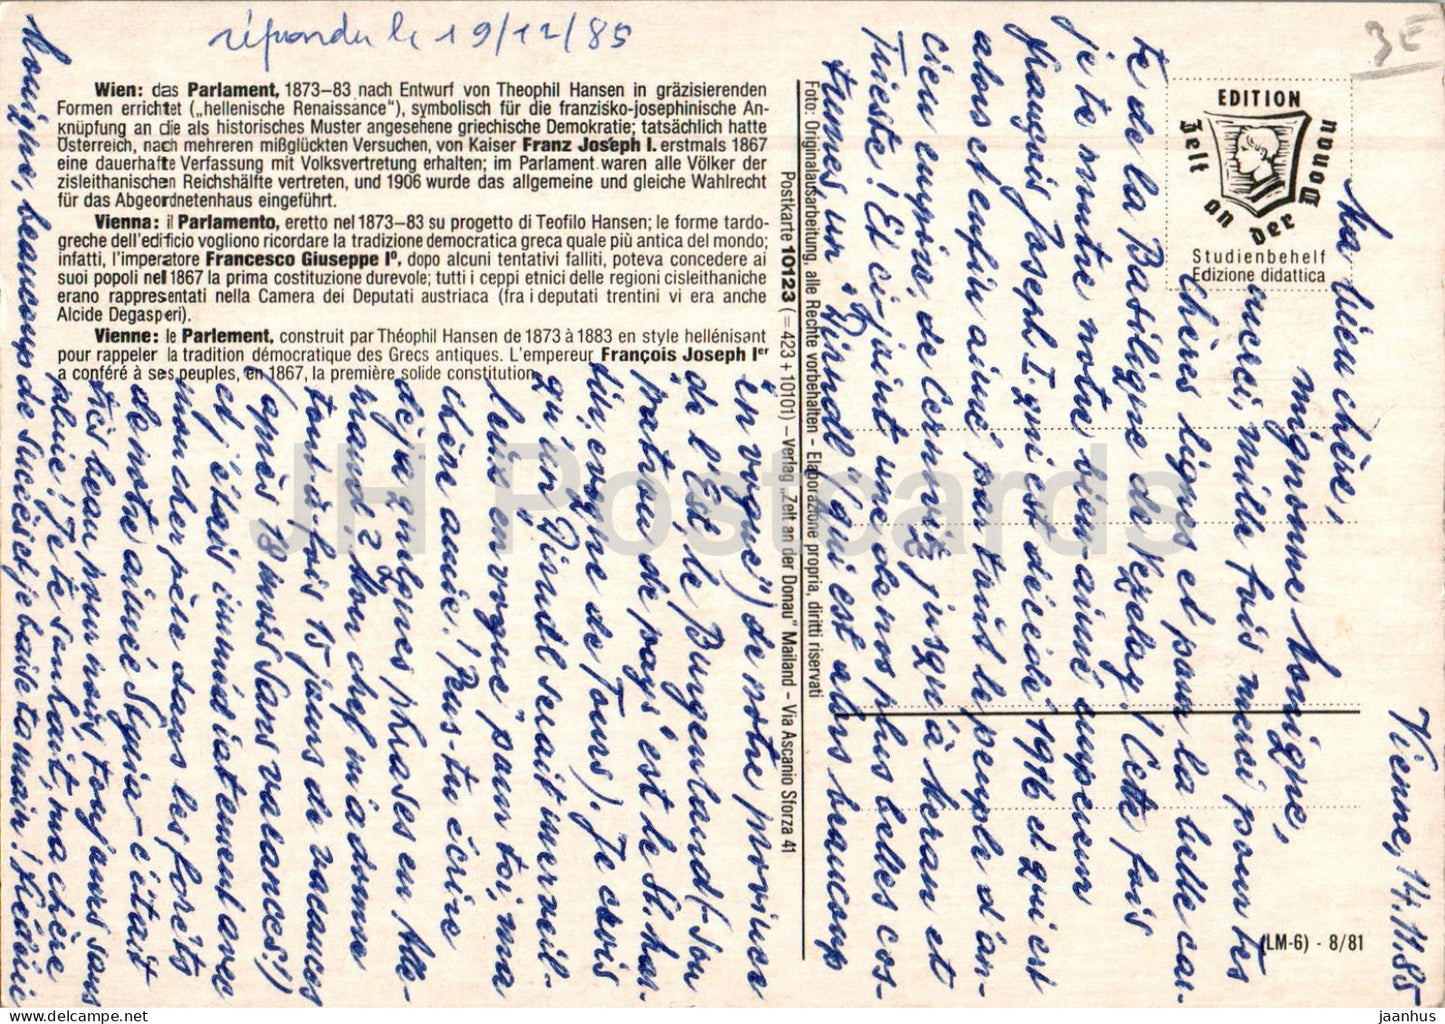 répondu le 19/12/85
3 E
Wien: das Parlament, 1873–83 nach Entwurf von Theophil Hansen in gräzisierenden
Formen errichtet („hellenische Renaissance"), symbolisch für die franzisko-josephinische An-
knüpfung an die als historisches Muster angesehene griechische Demokratie; tatsächlich hatte
Österreich, nach mehreren mißglückten Versuchen, von Kaiser Franz Joseph I. erstmals 1867
eine dauerhafte Verfassung mit Volksvertretung erhalten; im Parlament waren alle Völker der
zisleithanischen Reichshälfte vertreten, und 1906 wurde das allgemeine und gleiche Wahlrecht
für das Abgeordnetenhaus eingeführt.
Vienna: il Parlamento, eretto nel 1873–83 su progetto di Teofilo Hansen; le forme tardo-
greche dell'edificio vogliono ricordare la tradizione democratica greca quale più antica del mondo;
infatti, l'imperatore Francesco Giuseppe Iº, dopo alcuni tentativi falliti, poteva concedere ai
suoi popoli nel 1867 la prima costituzione durevole; tutti i ceppi etnici delle regioni cisleithaniche
erano rappresentati nella Camera dei Deputati austriaca (fra i deputati trentini vi era anche
Alcide Degasperi).
Vienne: le Parlement, construit par Théophil Hansen de 1873 à 1883 en style hellénisant
pour rappeler la tradition démocratique des Grecs antiques. L'empereur François Joseph Ier
a conféré à ses peuples, en 1867, la première solide constitution.
Foto: Originalausarbeitung, alle Rechte vorbehalten - Elaborazione propria, diritti riservati
Postkarte 10123 (= 423 + 10101) – Verlag „Zelt an der Donau" Mailand - Via Ascanio Sforza 41
EDITION
Zelt an der Donau
Studienbehelf
Edizione didattica
(LM-6) - 8/81
Vienne, 14.11.85
Ma bien chère,
mignonne Monique,
merci, mille fois merci pour tes
chères lignes et pour la belle car-
te de la Basilique de Vézelay! Cette fois
je te montre notre bien-aimé empereur
François Joseph I. qui est décédé 1916 et qui est
alors et enfin aimé par tout le peuple d'an-
cien empire, de Cernovitz jusqu'à Meran et
Trieste! Et ci-joint une de nos plus belles cos-
tumes, un "Dirndl" (qui est alors beaucoup
en vogue") de notre province
de l'Est, le Burgenland (son
patron de pays est le St. Mar-
tin, evêque de Tours). Je crois
qu'un Dirndl serait merveil-
leux en vogue pour toi, ma
chère amie! Peux-tu écrire
déja quelques phrases en Alle-
mand? Mon chef m'a donné
tout-à-fois 15 jours de vacances
(après 18 mois sans vacances!)
et j'étais immédiatement avec
mon cher père dans les forêts
de notre aimée Styrie - c'était
très beau pour nous, toujours sans
pluie! Je te souhait, ma chère
Monique, beaucoup de succès et je baise ta main! Frédéric
JH Postcards
jaanhus @ delcampe.net